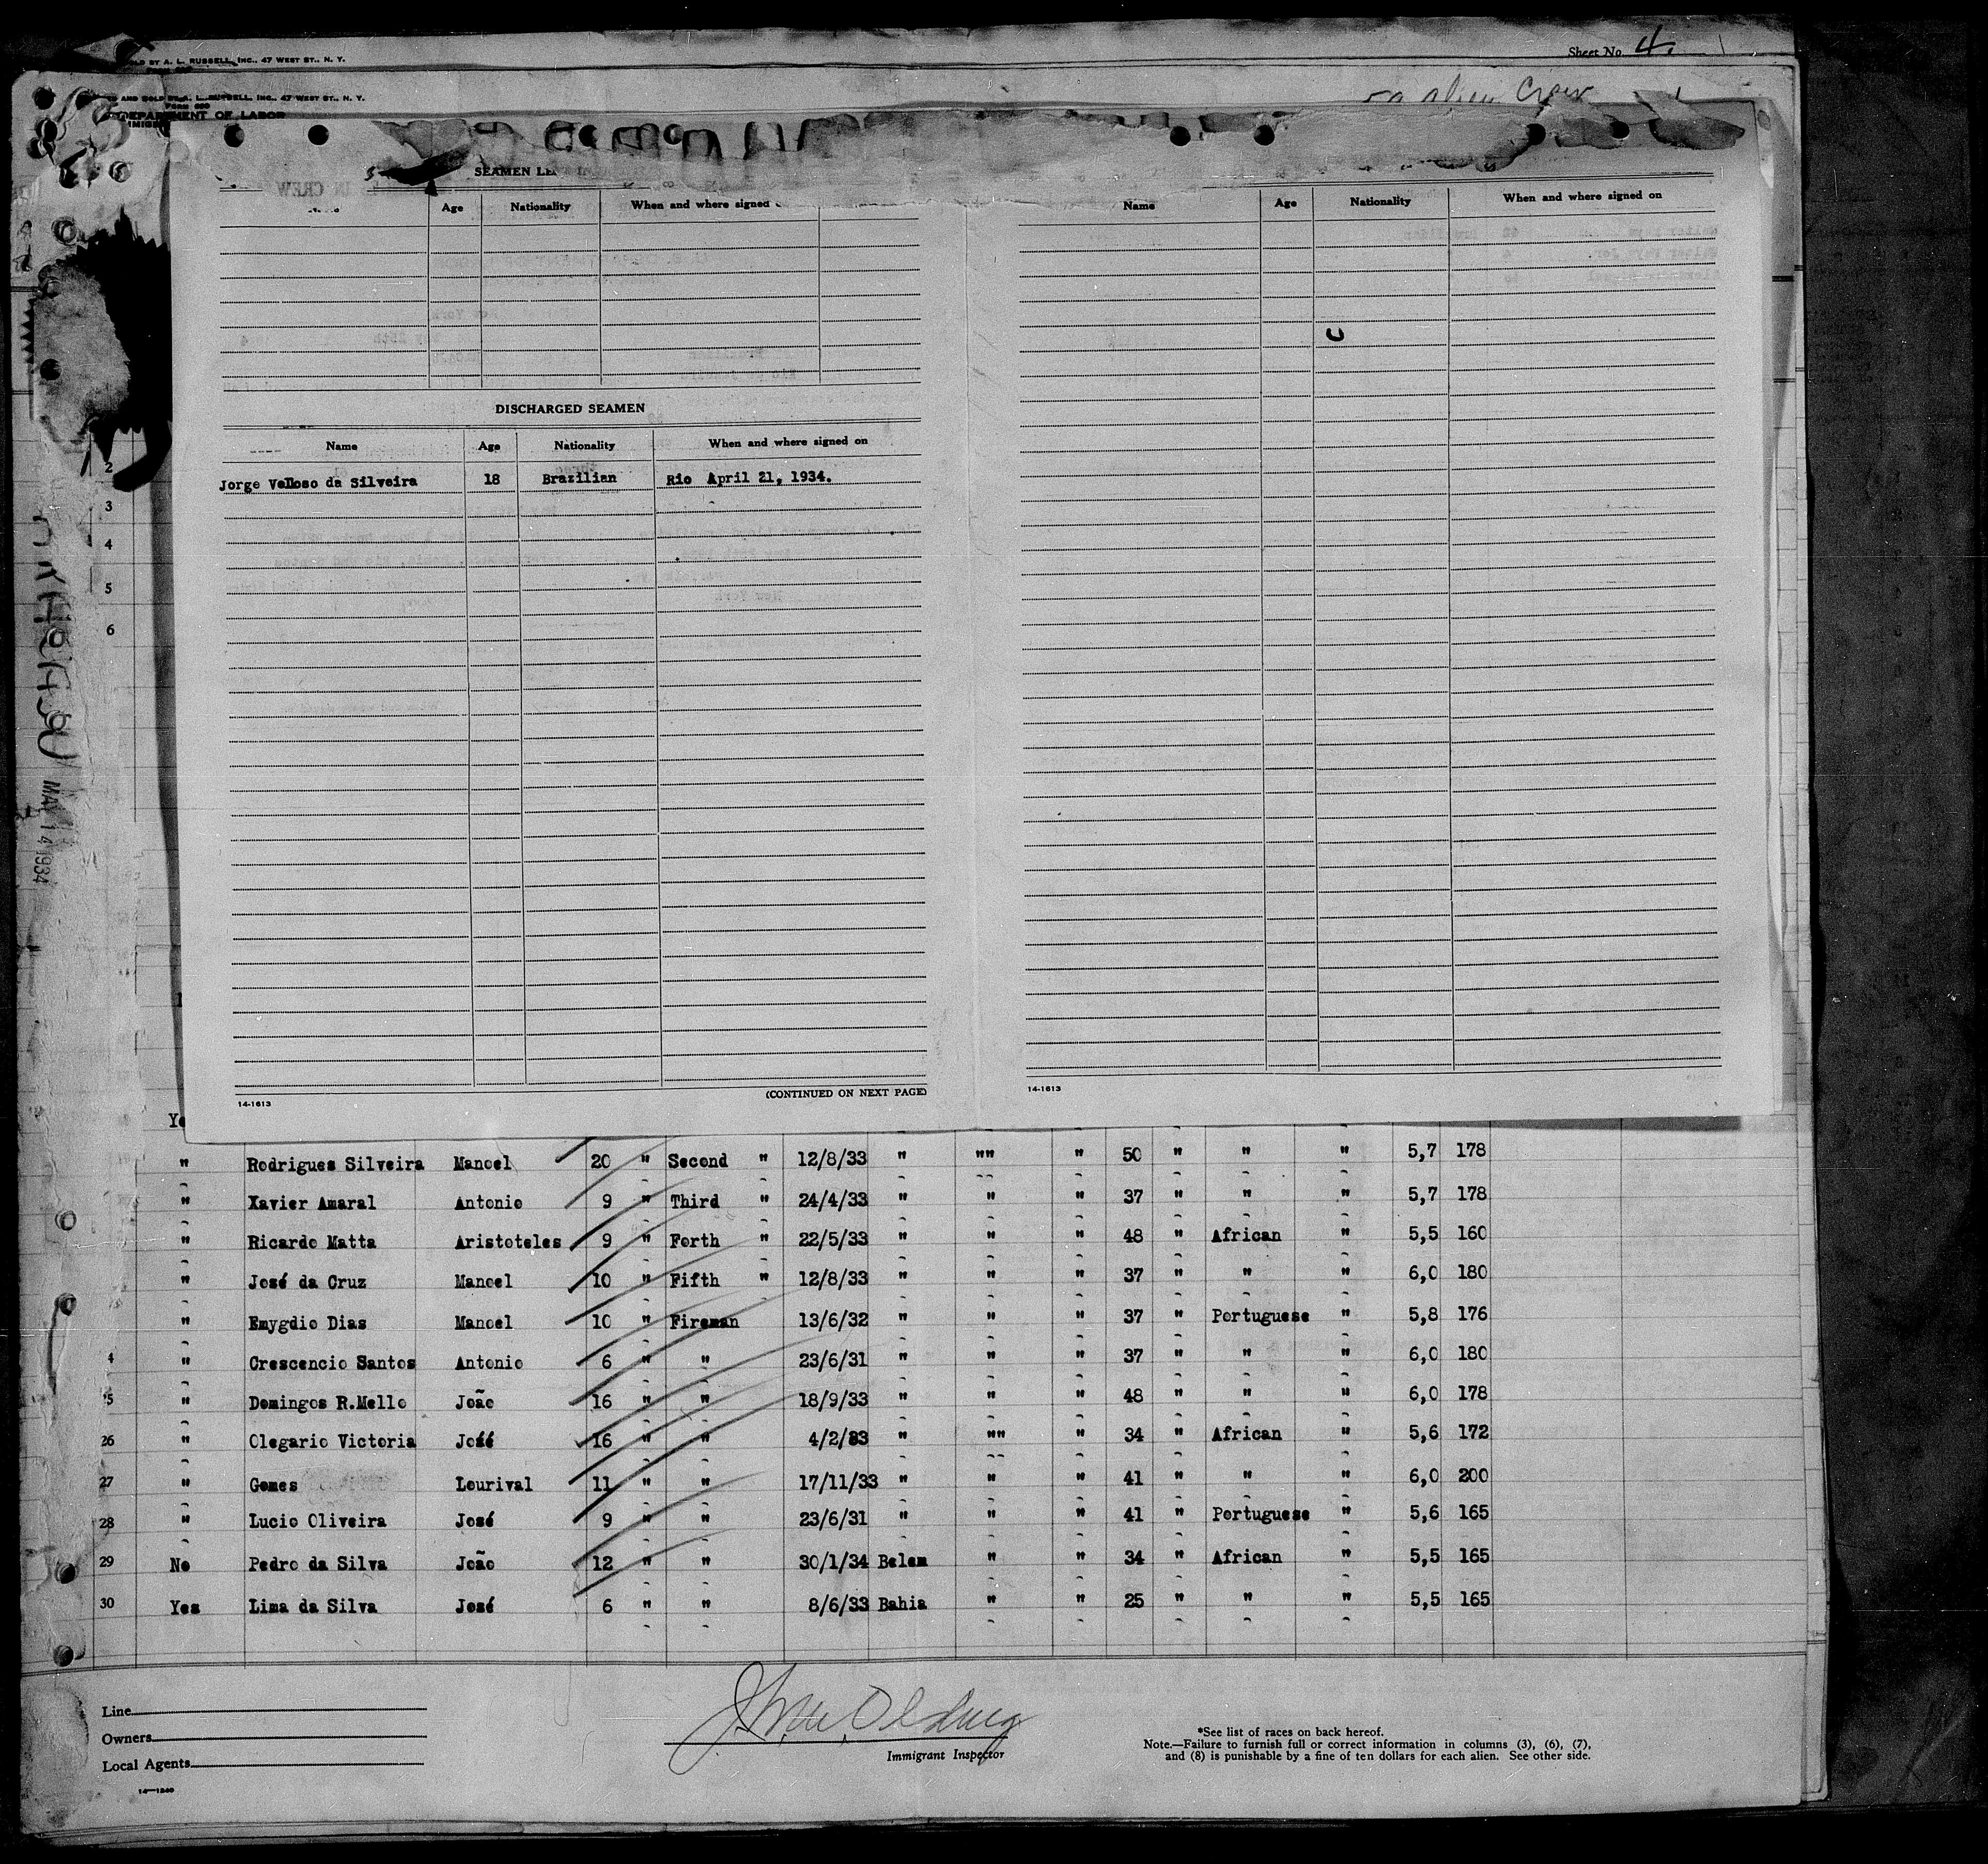 Sheet No. 4.
SOLD BY A. L. RUSSELL, INC., 47 WEST ST., N. Y.
AND SOLD BY A. L. RUSSELL, INC., 47 WEST ST., N. Y.
Form 680
DEPARTMENT OF LABOR
alien Crew
SEAMEN
Age Nationality When and where signed
Name Age Nationality When and where signed on
DISCHARGED SEAMEN
Name Age Nationality When and where signed on
Jorge Velloso da Silveira 18 Brazilian Rio April 21, 1934.
2
3
4
5
6
MAY 14 1934
(CONTINUED ON NEXT PAGE)
14-1613
14-1613
" Rodrigues Silveira Manoel 20 " Second " 12/8/33 " "" " 50 " " " 5,7 178
" Xavier Amaral Antonio 9 " Third " 24/4/33 " " " 37 " " " 5,7 178
" Ricardo Matta Aristoteles 9 " Forth " 22/5/33 " " " 48 " African " 5,5 160
" José da Cruz Manoel 10 " Fifth " 12/8/33 " " " 37 " " " 6,0 180
" Emygdio Dias Manoel 10 " Fireman 13/6/32 " " " 37 " Portuguese " 5,8 176
4 " Crescencio Santos Antonio 6 " " 23/6/31 " " " 37 " " " 6,0 180
5 " Domingos R.Mello João 16 " " 18/9/33 " " " 48 " " " 6,0 178
26 " Olegario Victoria José 16 " " 4/2/33 " "" " 34 " African " 5,6 172
27 " Gomes Lourival 11 " " 17/11/33 " " " 41 " " " 6,0 200
28 " Lucio Oliveira José 9 " " 23/6/31 " " " 41 " Portuguese " 5,6 165
29 No Pedro da Silva João 12 " " 30/1/34 Belem " " 34 " African " 5,5 165
30 Yes Lima da Silva José 6 " " 8/6/33 Bahia " " 25 " " " 5,5 165
Line
Owners
Local Agents
14—1240
Immigrant Inspector
*See list of races on back hereof.
Note.—Failure to furnish full or correct information in columns (3), (6), (7),
and (8) is punishable by a fine of ten dollars for each alien. See other side.